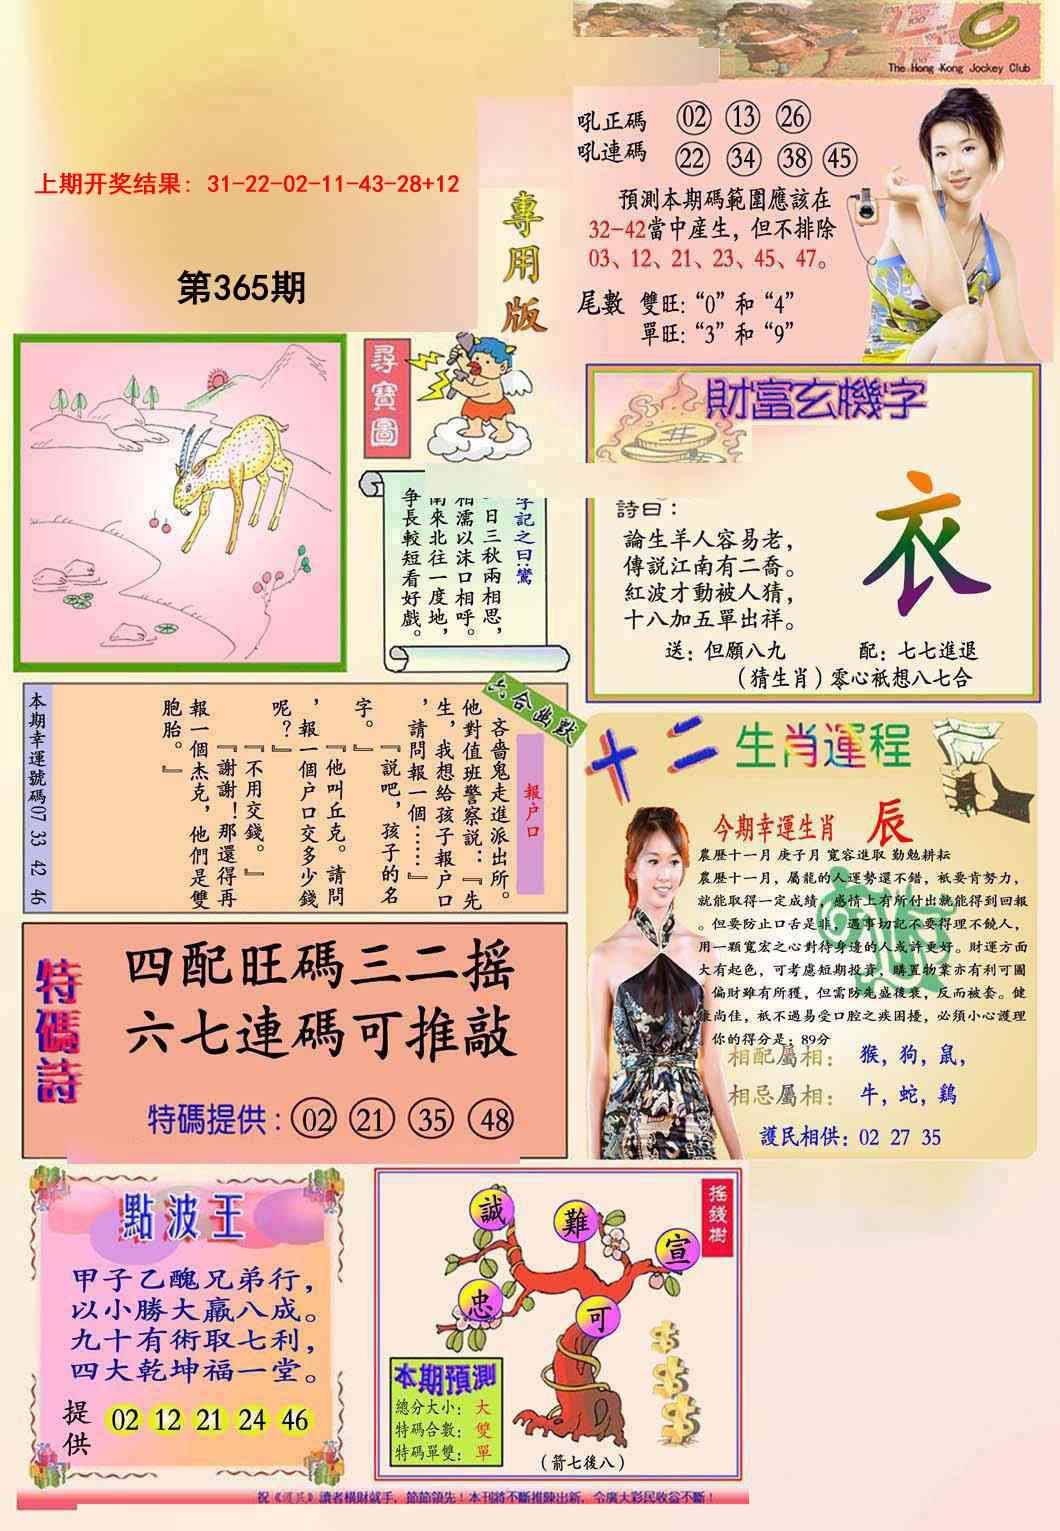 The Hong Kong Jockey Club
上期开奖结果：31-22-02-11-43-28+12
第365期
專用版
吼正碼 02 13 26
吼連碼 22 34 38 45
預測本期碼範圍應該在
32-42當中産生，但不排除
03、12、21、23、45、47。
尾數 雙旺：“0”和“4”
單旺：“3”和“9”
尋寶圖
字記之曰：鸞
一日三秋兩相思，
相濡以沫口相呼。
南來北往一度地，
争長較短看好戲。
財富玄機字
詩曰：
論生羊人容易老，
傳説江南有二喬。
紅波才動被人猜，
十八加五單出祥。
衣
送：但願八九
配：七七進退
（猜生肖）零心祇想八七合
六合幽默
報户口
吝嗇鬼走進派出所。
他對值班警察説：『先
生，我想給孩子報户口
，請問報一個……』
『説吧，孩子的名
字。』
『他叫丘克。請問
，報一個户口交多少錢
呢？』
『不用交錢。』
『謝謝！那還得再
報一個杰克，他們是雙
胞胎。』
本期幸運號碼07 33 42 46
十二生肖運程
今期幸運生肖 辰
農歷十一月 庚子月 寬容進取 勤勉耕耘
農歷十一月，屬龍的人運勢還不錯，祇要肯努力，
就能取得一定成績，感情上有所付出就能得到回報
。但要防止口舌是非，遇事切記不要得理不饒人，
用一顆寬宏之心對待身邊的人或許更好。財運方面
大有起色，可考慮短期投資，購置物業亦有利可圖
，偏財雖有所獲，但需防先盛後衰，反而被套。健
康尚佳，祇不過易受口腔之疾困擾，必須小心護理
。你的得分是：89分
相配屬相：猴，狗，鼠，
相忌屬相：牛，蛇，鷄
護民相供：02 27 35
特碼詩
四配旺碼三二摇
六七連碼可推敲
特碼提供：02 21 35 48
點波王
甲子乙醜兄弟行，
以小勝大贏八成。
九十有術取七利，
四大乾坤福一堂。
提供 02 12 21 24 46
摇錢樹
誠
難
宣
忠
可
本期預測
總分大小：大
特碼合數：雙
特碼單雙：單
（箭七後八）
讀者横財就手，節節領先！本刊將不斷推陳出新，令廣大彩民收益不斷！